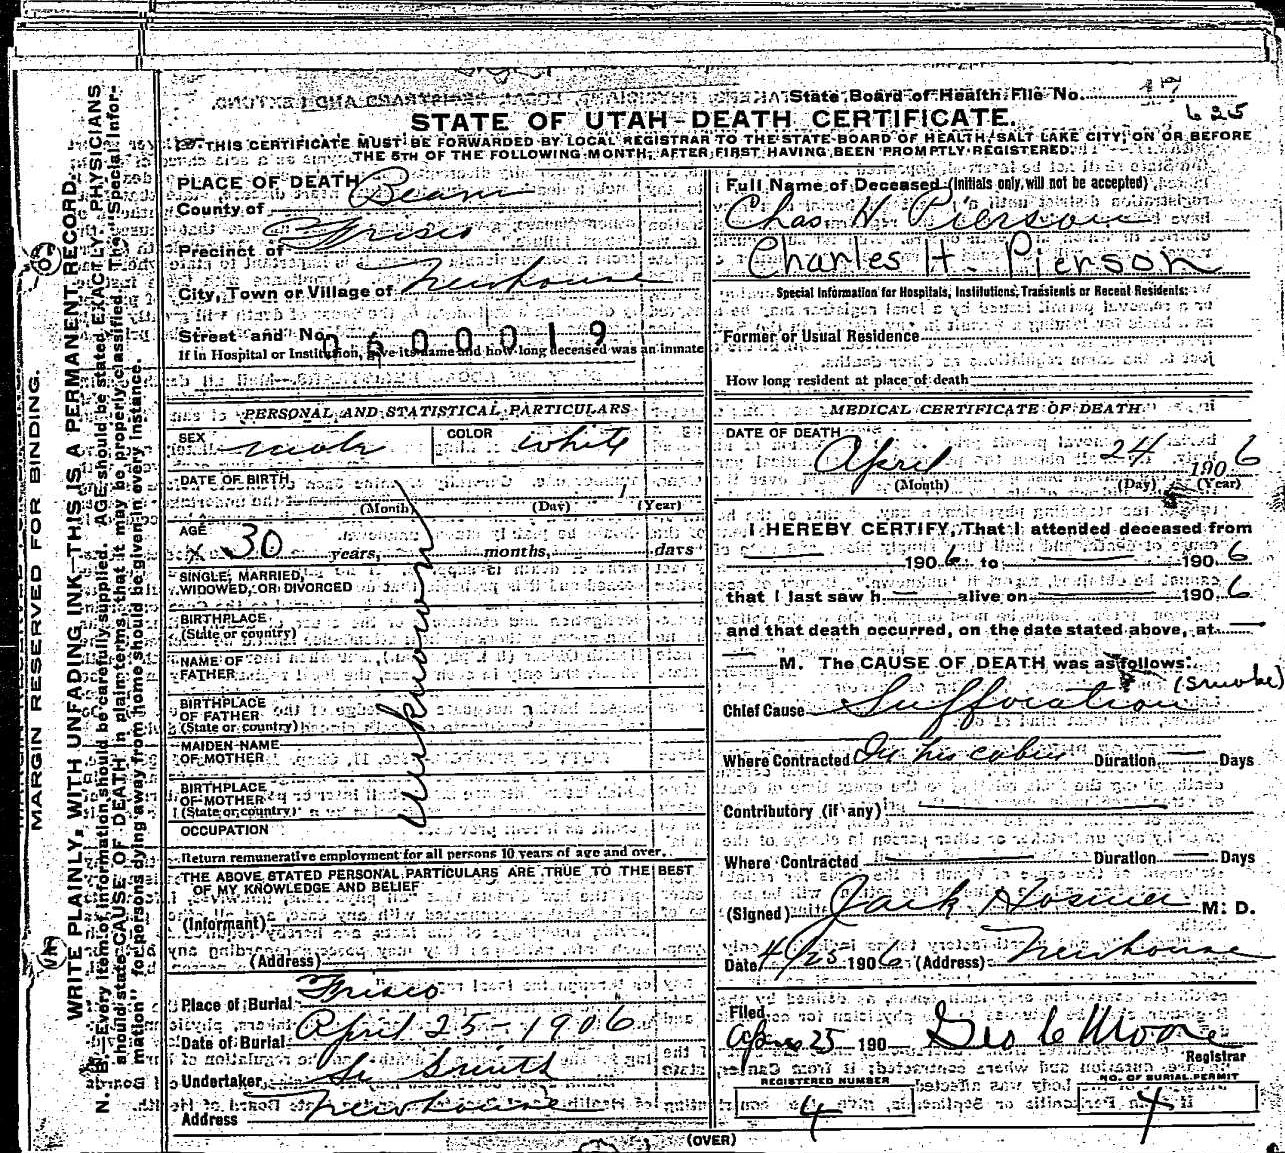 State Board of Health File No. 17
625
STATE OF UTAH - DEATH CERTIFICATE.
THIS CERTIFICATE MUST BE FORWARDED BY LOCAL REGISTRAR TO THE STATE BOARD OF HEALTH, SALT LAKE CITY, ON OR BEFORE
THE 5TH OF THE FOLLOWING MONTH, AFTER FIRST HAVING BEEN PROMPTLY REGISTERED.
MARGIN RESERVED FOR BINDING.
WRITE PLAINLY, WITH UNFADING INK—THIS IS A PERMANENT RECORD.
N. B.—Every item of information should be carefully supplied. AGE should be stated EXACTLY. PHYSICIANS
should state CAUSE OF DEATH in plain terms, that it may be properly classified. The "Special Infor-
mation" for persons dying away from home should be given in every instance.
PLACE OF DEATH
County of Beaver
Precinct of Frisco
City, Town or Village of Newhouse
Street and No.
0600019
If in Hospital or Institution, give its name and how long deceased was an inmate
PERSONAL AND STATISTICAL PARTICULARS
SEX male COLOR white
DATE OF BIRTH
(Month) (Day) 1 (Year)
AGE
x 30 years, months, days
SINGLE, MARRIED,
WIDOWED, OR DIVORCED
BIRTHPLACE
(State or country)
NAME OF
FATHER
BIRTHPLACE
OF FATHER
(State or country)
MAIDEN NAME
OF MOTHER
BIRTHPLACE
OF MOTHER
(State or country)
Unknown
OCCUPATION
Return remunerative employment for all persons 10 years of age and over.
THE ABOVE STATED PERSONAL PARTICULARS ARE TRUE TO THE BEST
OF MY KNOWLEDGE AND BELIEF
(Informant)
(Address)
Place of Burial Frisco
Date of Burial April 25 - 1906
Undertaker, Si Smith
Address Newhouse
Full Name of Deceased (Initials only, will not be accepted)
Chas. H Pierson
Charles H. Pierson
Special Information for Hospitals, Institutions, Transients or Recent Residents:
Former or Usual Residence
How long resident at place of death
MEDICAL CERTIFICATE OF DEATH
DATE OF DEATH
April 24 1906
(Month) (Day) (Year)
I HEREBY CERTIFY, That I attended deceased from
— 1906 to — 1906
that I last saw h— alive on — 1906
and that death occurred, on the date stated above, at —
— M. The CAUSE OF DEATH was as follows:
(Smoke)
Chief Cause Suffocation
Where Contracted In his cabin Duration — Days
Contributory (if any) —
Where Contracted — Duration — Days
(Signed) Jack Hosmer M. D.
Date 4/25 1906 (Address) Newhouse
Filed
Apr 25 190 Geo C Moore
Registrar
REGISTERED NUMBER
4
NO. OF BURIAL PERMIT
4
(OVER)